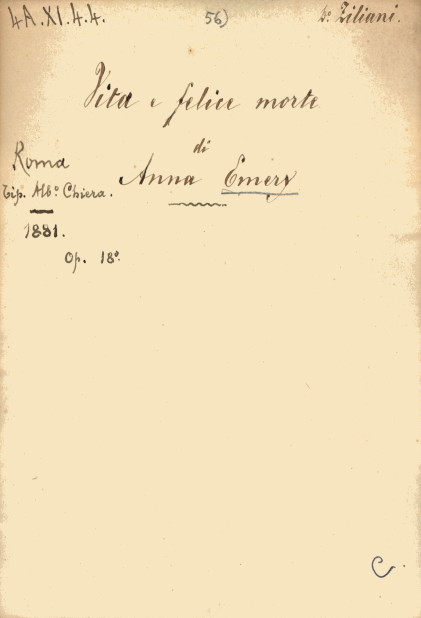 4A.XI.4.4.
56)
Dº Ziliani.
Vita e felice morte
di
Anna Emery
Roma
Tip. Albº Chiera.
1881.
Op. 18º.
C.